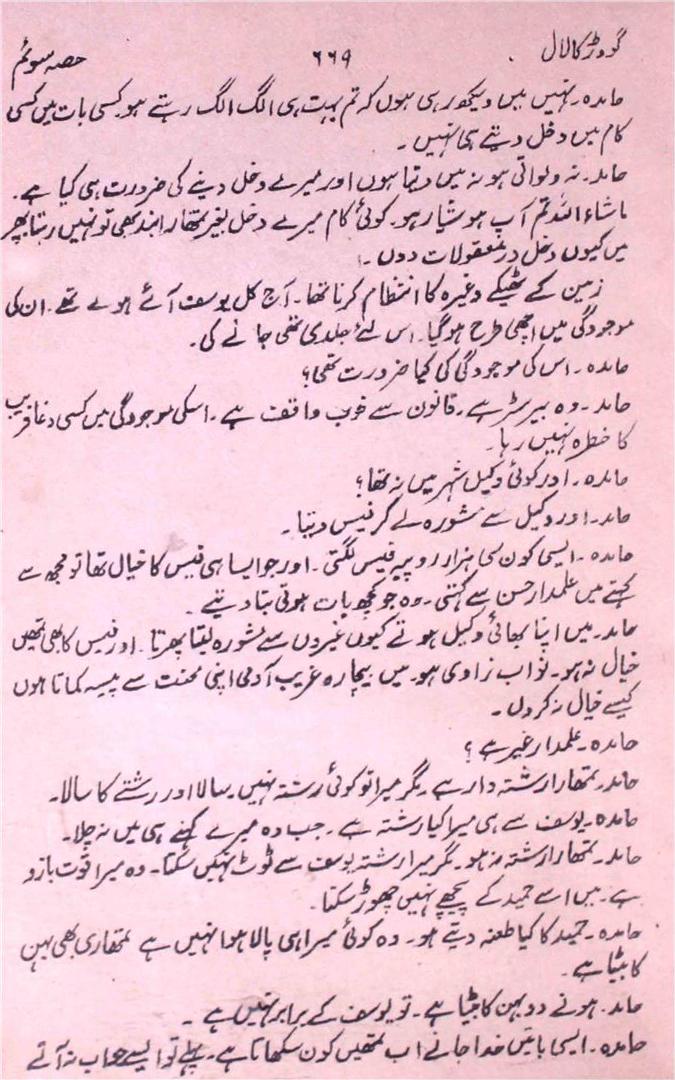 گودڑ کا لال ۶۶۹ حصہ سوئم
حامدہ۔ نہیں میں دیکھ رہی ہوں کہ تم بہت ہی الگ الگ رہتے ہو کسی بات میں کسی
کام میں دخل دیتے ہی نہیں۔
حامد۔ نہ دلواتی ہو نہ میں دیتا ہوں اور میرے دخل دینے کی ضرورت ہی کیا ہے۔
ماشاء اللہ تم آپ ہوشیار ہو۔ کوئی کام میرے دخل بغیر تمھارا بند بھی تو نہیں رہتا پھر
میں کیوں دخل در معقولات دوں۔
زمین کے ٹھیکے وغیرہ کا انتظام کرنا تھا۔ آج کل یوسف آئے ہوے تھے۔ ان کی
موجودگی میں اچھی طرح ہوگیا۔ اس لئے جلدی تھی جانے کی۔
حامدہ۔ اس کی موجودگی کی کیا ضرورت تھی؟
حامد۔ وہ بیرسٹر ہے۔ قانون سے خوب واقف ہے۔ اسکی موجودگی میں کسی دغا فریب
کا خطرہ نہیں رہا۔
حامدہ۔ اور کوئی وکیل شہر میں نہ تھا؟
حامد۔ اور وکیل سے مشورہ لے کر فیس دیتا۔
حامدہ۔ ایسی کون سی ہزار روپیہ فیس لگتی۔ اور جو ایسا ہی فیس کا خیال تھا تو مجھ سے
کہتے میں علمدار حسن سے کہتی۔ وہ جو کچھ بات ہوتی بتا دیتے۔
حامد۔ میں اپنا بھائی وکیل ہوتے کیوں غیروں سے مشورہ لیتا پھرتا۔ اور فیس کا بھی تمھیں
خیال نہ ہو۔ نواب زادی ہو۔ میں بیچارہ غریب آدمی اپنی محنت سے پیسہ کماتا ہوں
کیسے خیال نہ کروں۔
حامدہ۔ علمدار غیر ہے؟
حامد۔ تمھارا رشتہ دار ہے۔ مگر میرا تو کوئی رشتہ نہیں۔ سالا اور رشتے کا سالا۔
حامدہ۔ یوسف سے ہی میرا کیا رشتہ ہے۔ جب وہ میرے کہنے ہی میں نہ چلا۔
حامد۔ تمھارا رشتہ نہ ہو۔ مگر میرا رشتہ یوسف سے ٹوٹ نہیں سکتا۔ وہ میرا قوت بازو
ہے۔ میں اسے حمید کے پیچھے نہیں چھوڑ سکتا۔
حامدہ۔ حمید کا کیا طعنہ دیتے ہو۔ وہ کوئی میرا ہی پالا ہوا نہیں ہے تمھاری بھی بہن
کا بیٹا ہے۔
حامد۔ ہونے دو بہن کا بیٹا ہے۔ تو یوسف کے برابر نہیں ہے۔
حامدہ۔ ایسی باتیں خدا جانے اب تمھیں کون سکھاتا ہے۔ پہلے تو ایسے جواب نہ آتے